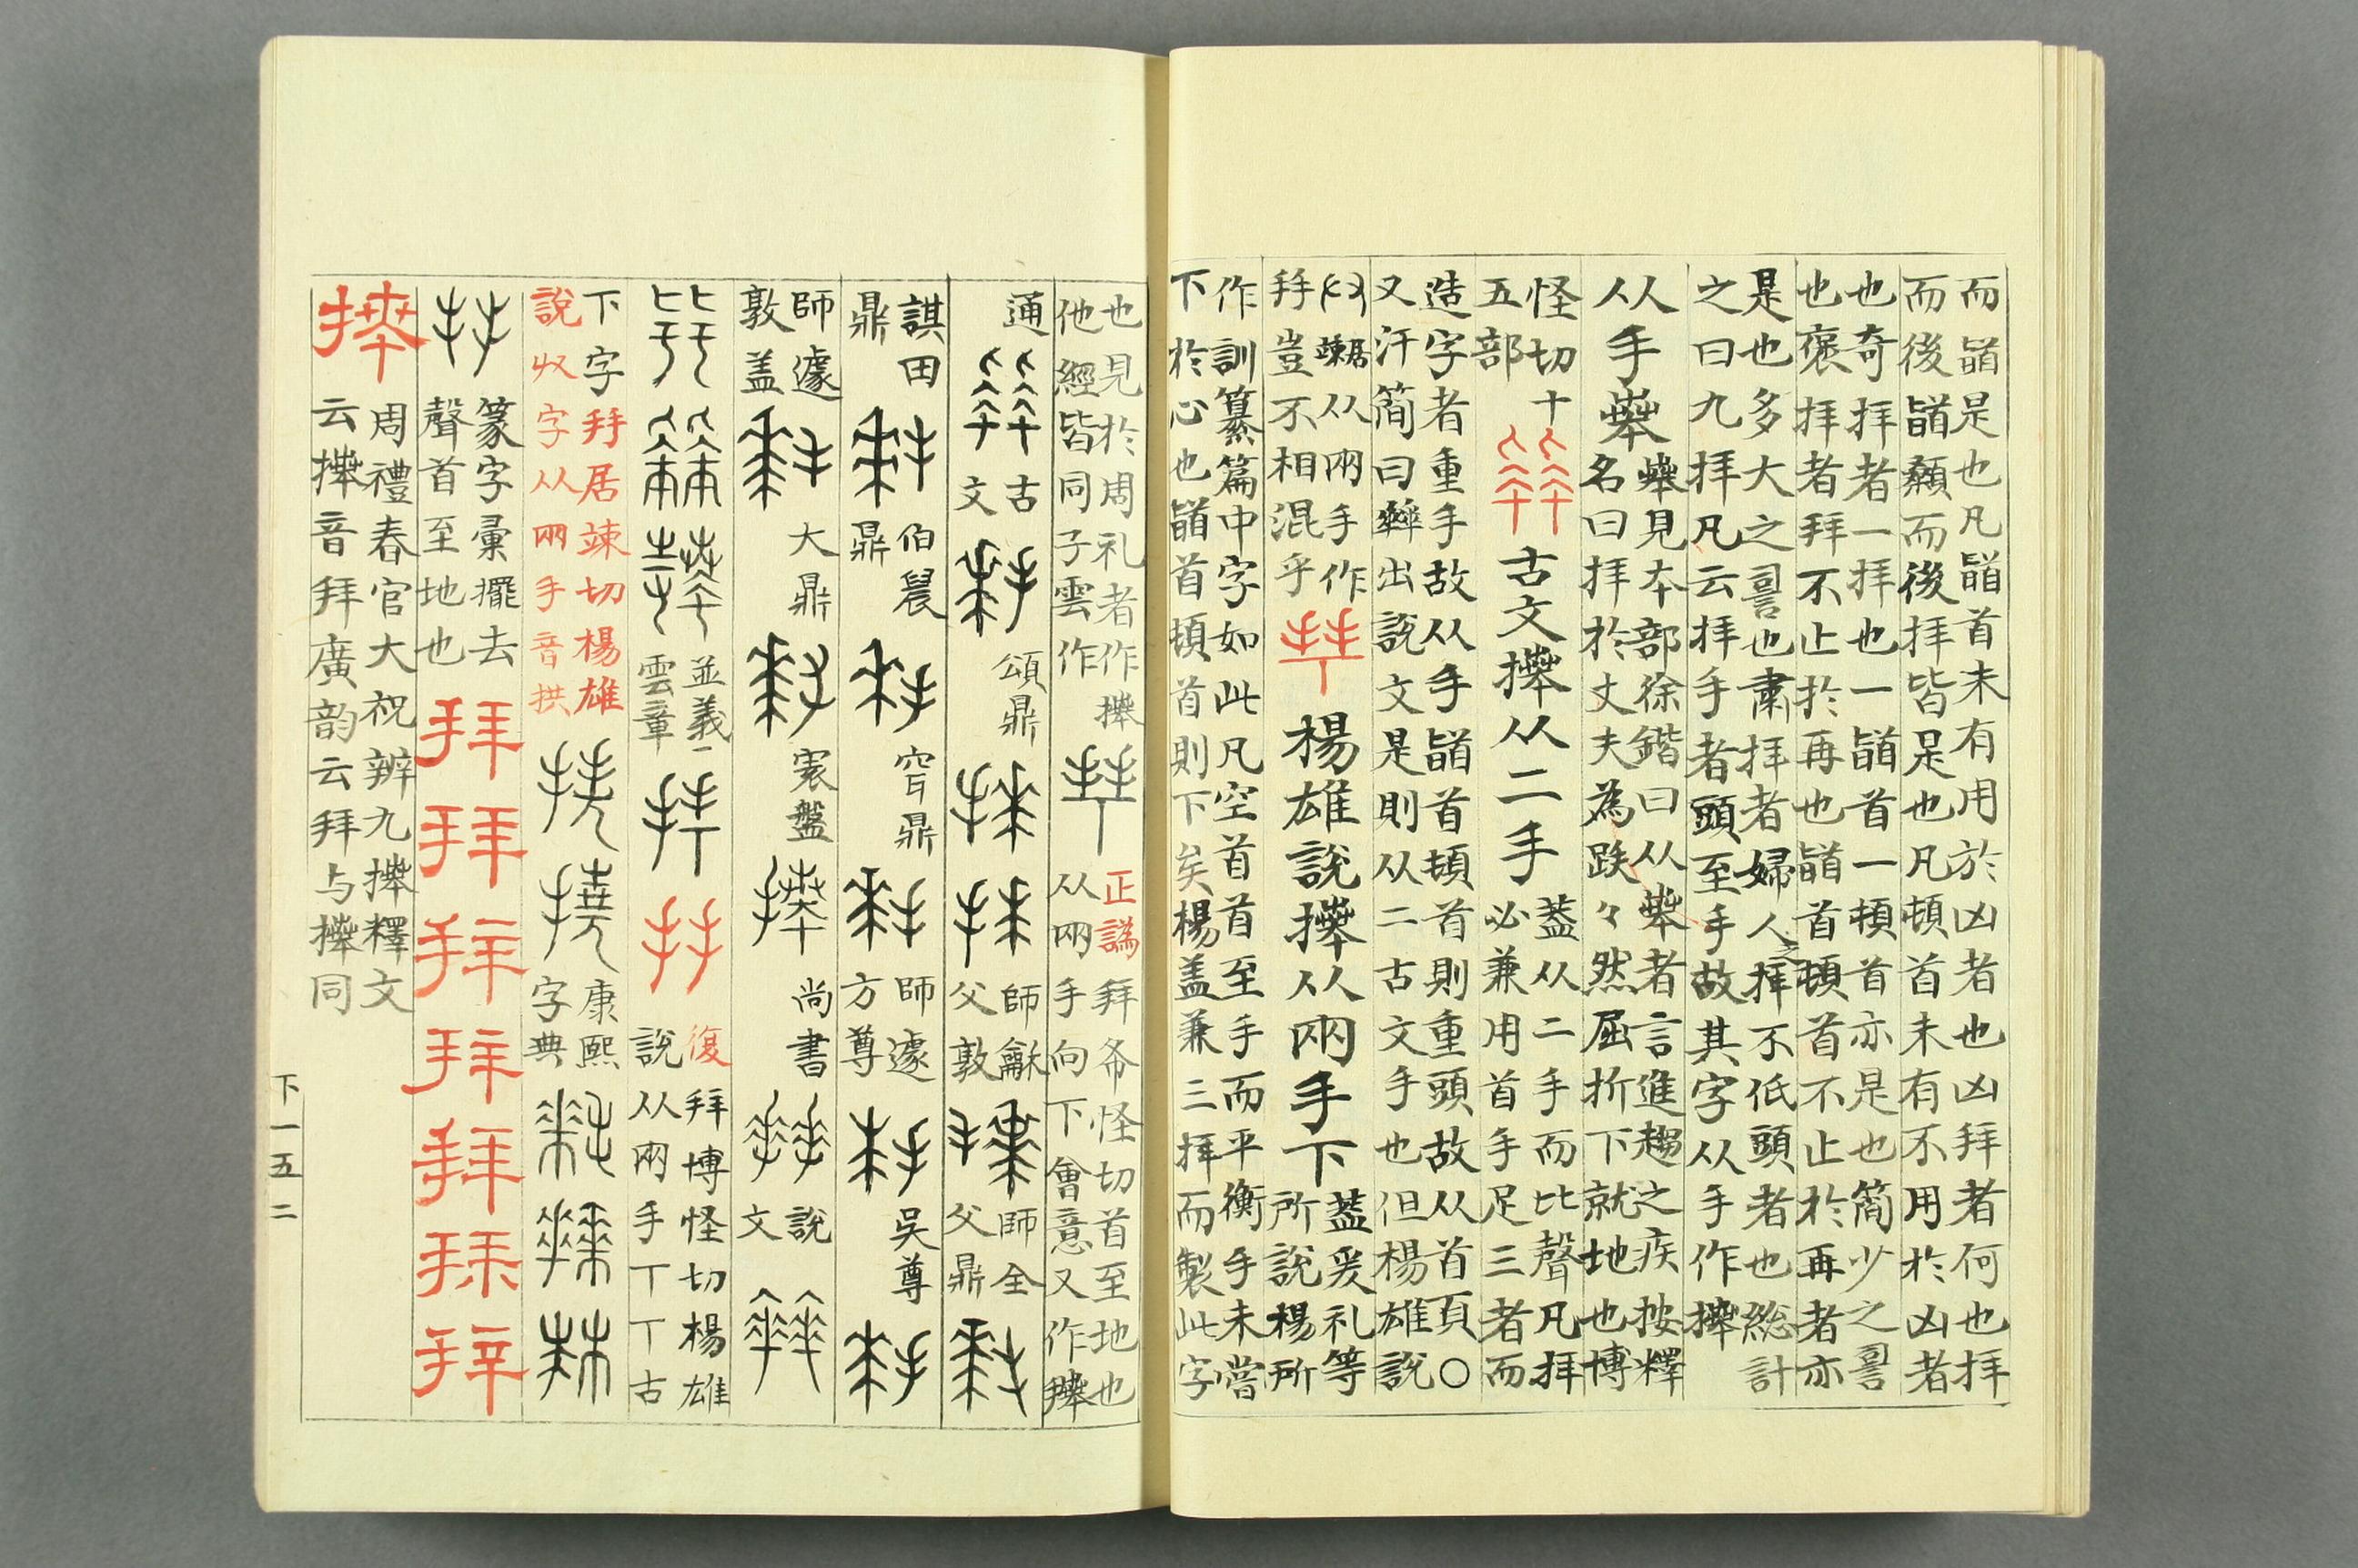 而䭫是也凡䭫首未有用於凶者也凶拜者何也拜
而後䭫顙而後拜皆是也凡頓首未有不用於凶者
也奇拜者一拜也一䭫首一頓首亦是也簡少之詈
也褒拜者拜不止於再也䭫首頓首不止於再者亦
是也多大之詈也肅拜者婦人之拜不低頭者也総計
之曰九拜凡云拜手者頭至手故其字从手作𢷎
从手𠦪
𠦪見本部徐鍇曰从𠦪者言進趨之疾按釋
名曰拜於丈夫為跌々然屈折下就地也博
怪切十
五部
古文𢷎从二手
葢从二手而比聲凡拜
必兼用首手足三者而
造字者重手故从手䭫首頓首則重頭故从首頁○
又汗簡曰出說文是則从二古文手也但楊雄說
居竦从兩手作
拜豈不相混乎
楊雄說𢷎从兩手下
葢爰礼等
所說楊所
作訓纂篇中字如此凡空首首至手而平衡手未嘗
下於心也䭫首頓首則下矣楊盖兼三拜而製此字
也見於周礼者作𢷎
他經皆同子雲作
正譌拜布怪切首至地也
从兩手向下會意又作
通
古文
頌鼎
師龢父敦
師全父鼎
諆田鼎
伯䢅鼎
窅鼎
師遽方尊
吳尊
師遽敦盖
大鼎
寰盤
尚書
說文
並義雲章
復拜博怪切楊雄
說从兩手丅丅古
下字拜居竦切楊雄
說収字从兩手音拱
康熙字典
篆字彚擺去
聲首至地也
拜
周禮春官大祝辨九𢷎釋文
云𢷎音拜廣韵云拜与𢷎同
下一五二